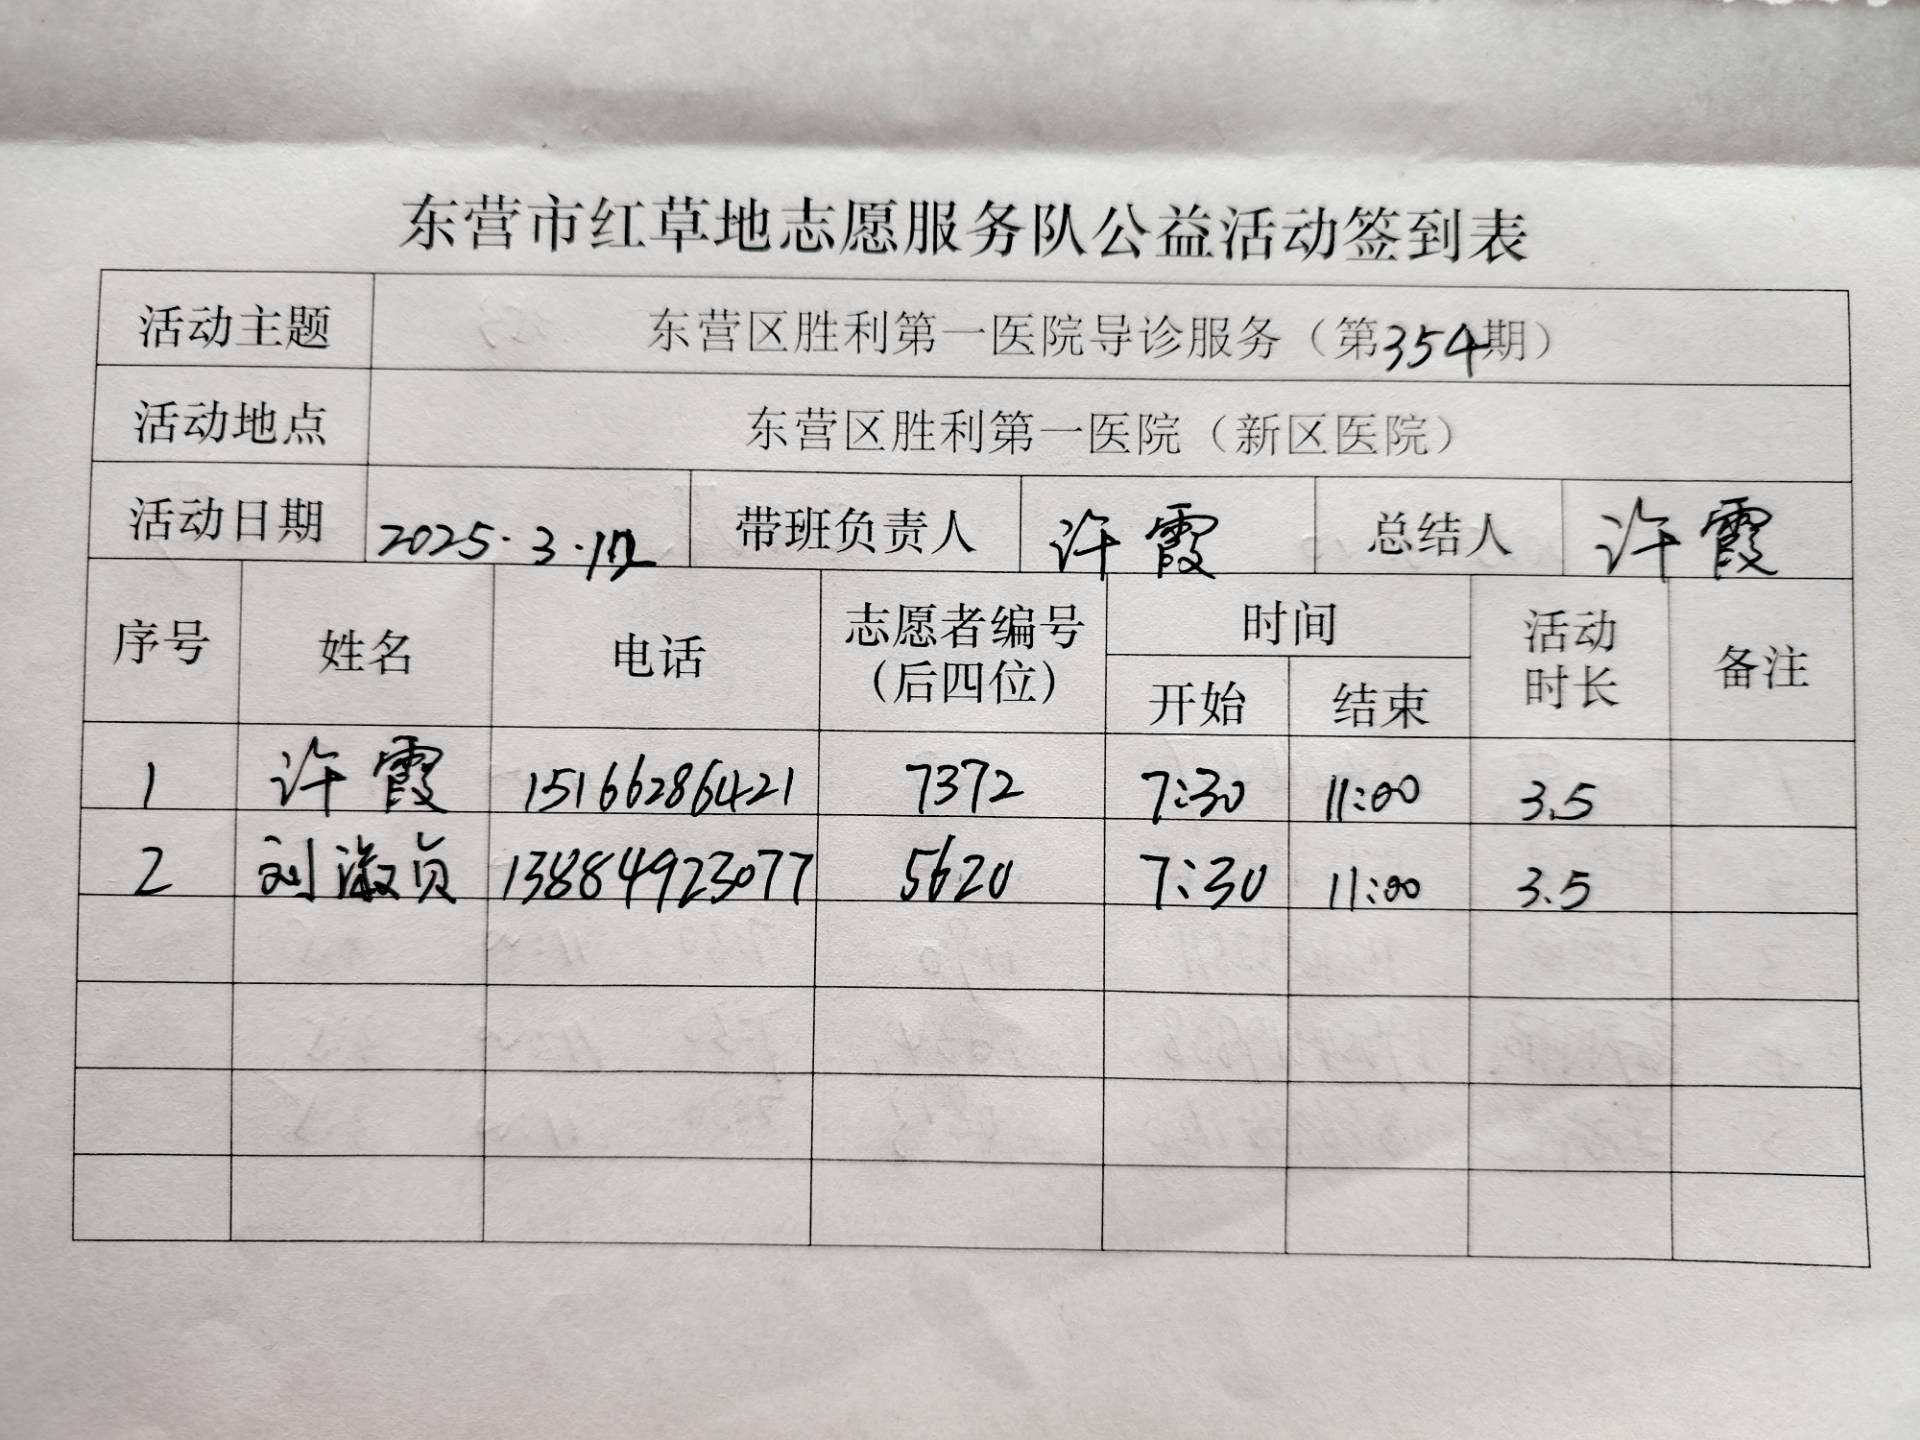 东营市红草地志愿服务队公益活动签到表
活动主题 东营区胜利第一医院导诊服务（第354期）
活动地点 东营区胜利第一医院（新区医院）
活动日期 2025.3. 带班负责人 许霞 总结人 许霞
序号 姓名 电话 志愿者编号（后四位） 时间 开始 结束 活动时长 备注
1 许霞 15166286421 7372 7:30 11:00 3.5
2 刘淑贞 13884923077 5620 7:30 11:00 3.5